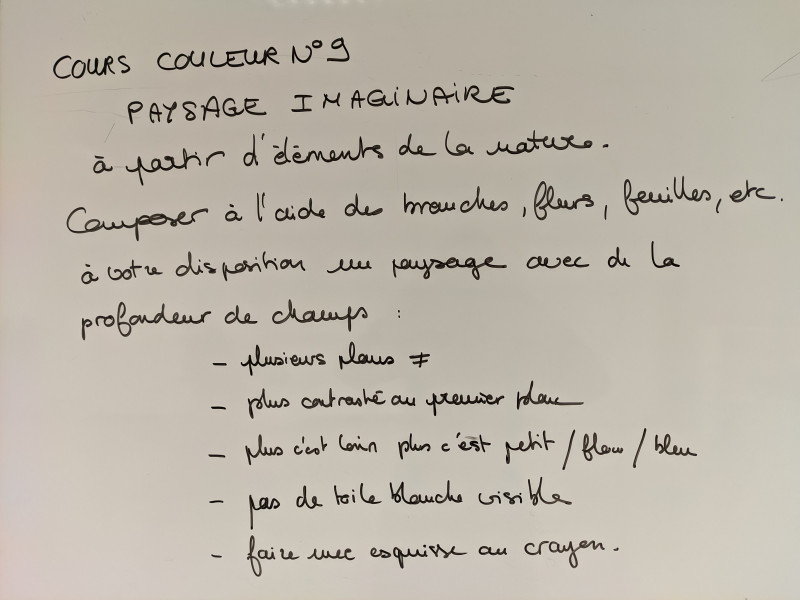 COURS COULEUR N°9
PAYSAGE IMAGINAIRE
à partir d'éléments de la nature.
Composer à l'aide des branches, fleurs, feuilles, etc.
à votre disposition un paysage avec de la
profondeur de champs :
- plusieurs plans ≠
- plus contrasté au premier plan
- plus c'est loin plus c'est petit / flou / bleu
- pas de toile blanche visible
- faire une esquisse au crayon.